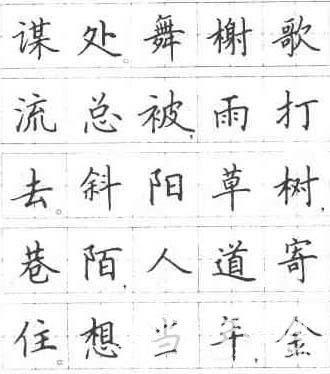 谋处。舞榭歌
流总被,雨打
去。斜阳草树,
巷陌,人道寄
住。想当年,金